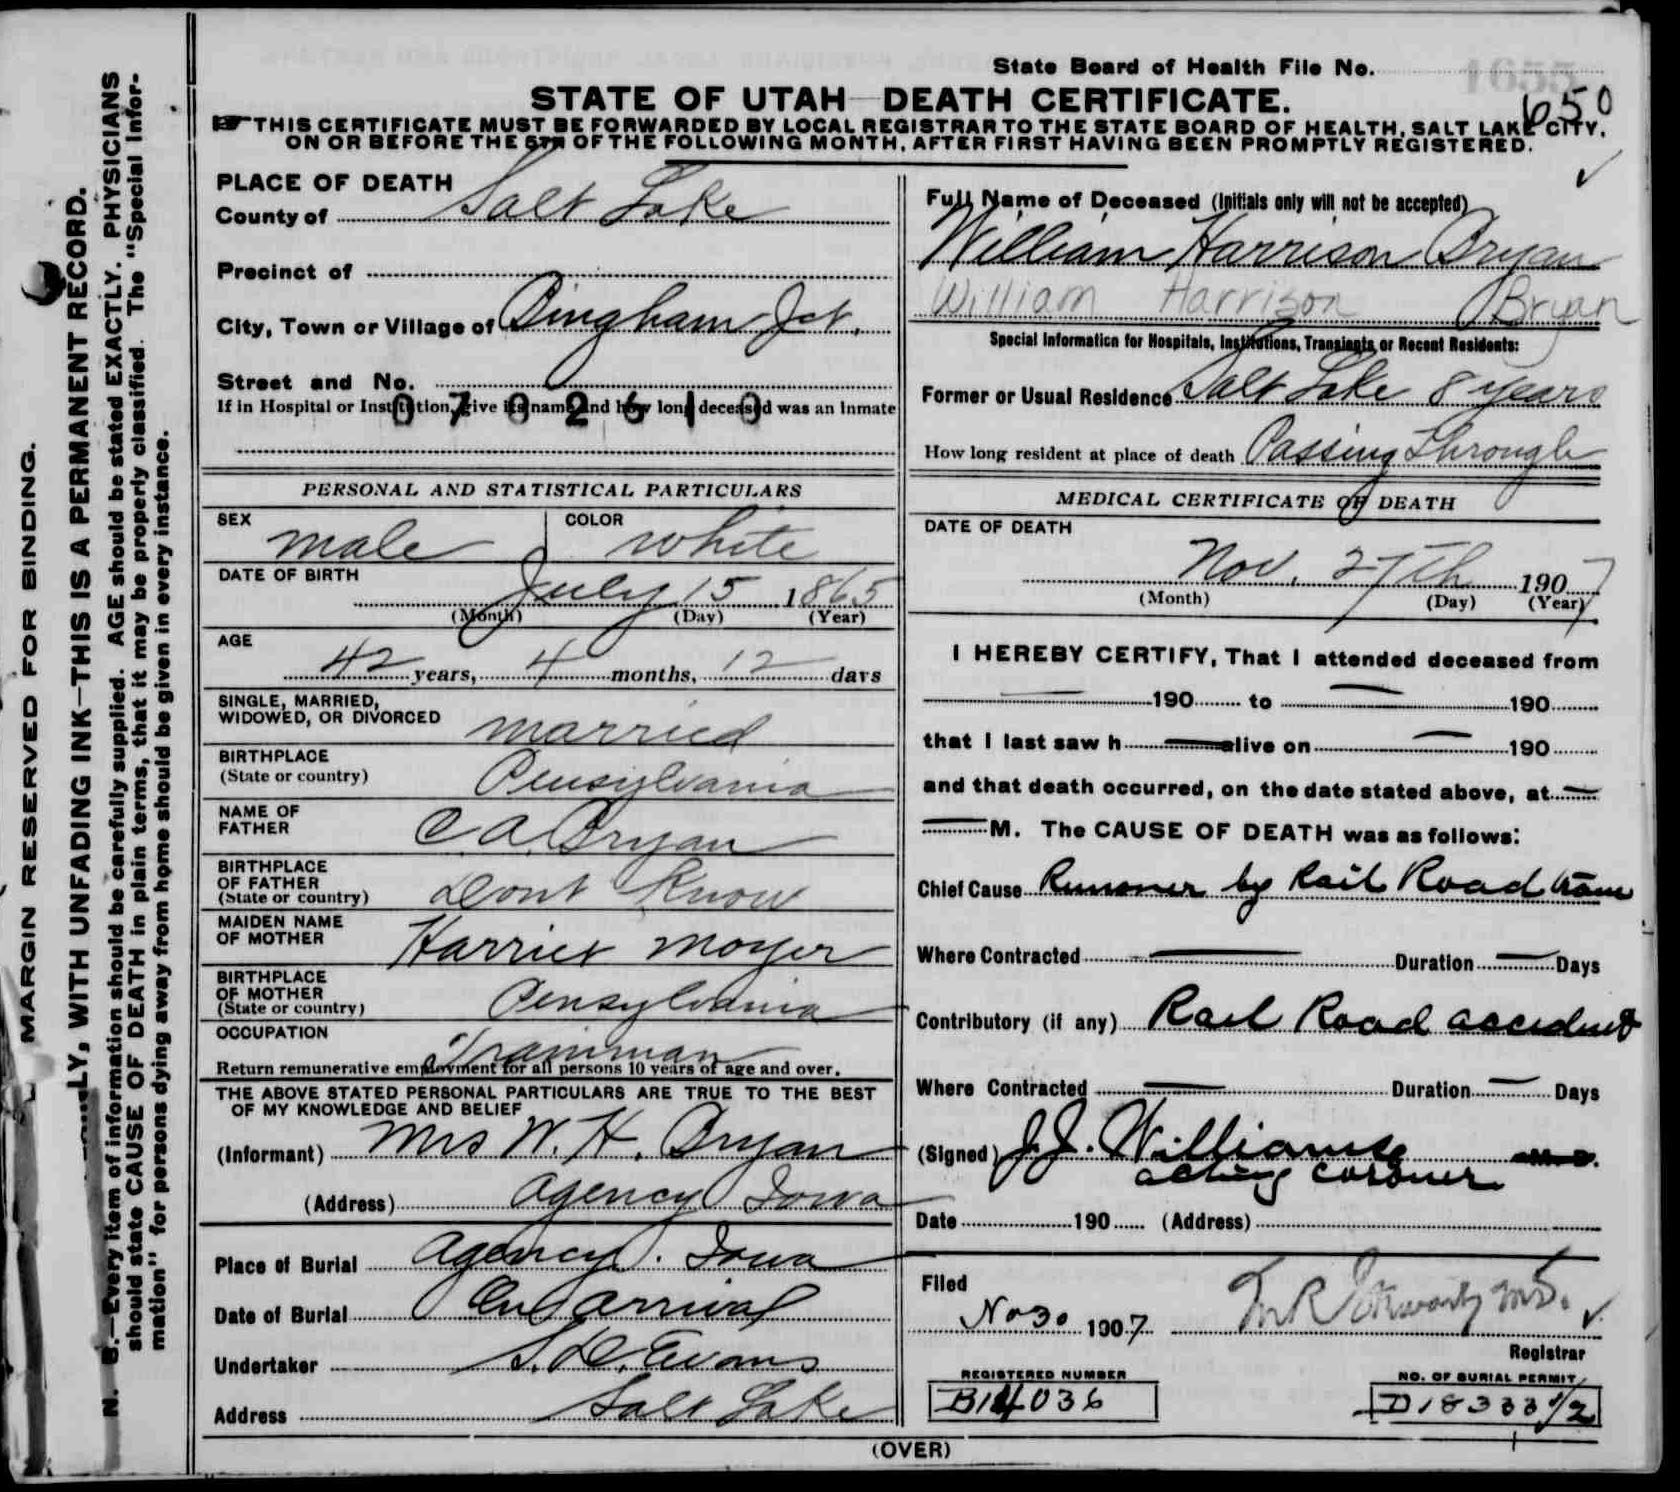 MARGIN RESERVED FOR BINDING.
LY, WITH UNFADING INK—THIS IS A PERMANENT RECORD.
N. B.—Every item of information should be carefully supplied. AGE should be stated EXACTLY. PHYSICIANS
should state CAUSE OF DEATH in plain terms, that it may be properly classified. The "Special Infor-
mation" for persons dying away from home should be given in every instance.
State Board of Health File No.
1655
650
STATE OF UTAH—DEATH CERTIFICATE.
THIS CERTIFICATE MUST BE FORWARDED BY LOCAL REGISTRAR TO THE STATE BOARD OF HEALTH, SALT LAKE CITY,
ON OR BEFORE THE 5TH OF THE FOLLOWING MONTH, AFTER FIRST HAVING BEEN PROMPTLY REGISTERED.
PLACE OF DEATH
County of Salt Lake
Precinct of
City, Town or Village of Bingham Jct.
Street and No.
If in Hospital or Institution, give its name and how long deceased was an Inmate
0702610
PERSONAL AND STATISTICAL PARTICULARS
SEX male COLOR white
DATE OF BIRTH July 15 1865
(Month) (Day) (Year)
AGE
42 years, 4 months, 12 days
SINGLE, MARRIED,
WIDOWED, OR DIVORCED married
BIRTHPLACE
(State or country) Pensylvania
NAME OF
FATHER C. A. Bryan
BIRTHPLACE
OF FATHER
(State or country) Dont Know
MAIDEN NAME
OF MOTHER Harriet Moyer
BIRTHPLACE
OF MOTHER
(State or country) Pensylvania
OCCUPATION
Trainman
Return remunerative employment for all persons 10 years of age and over.
THE ABOVE STATED PERSONAL PARTICULARS ARE TRUE TO THE BEST
OF MY KNOWLEDGE AND BELIEF
(Informant) Mrs W. H. Bryan
(Address) Agency Iowa
Place of Burial Agency. Iowa
Date of Burial On Arrival
Undertaker S. D. Evans
Address Salt Lake
Full Name of Deceased (Initials only will not be accepted)
William Harrison Bryan
William Harrison Bryan
Special Information for Hospitals, Institutions, Transients or Recent Residents:
Former or Usual Residence Salt Lake 8 years
How long resident at place of death Passing Through
MEDICAL CERTIFICATE OF DEATH
DATE OF DEATH
Nov. 27th 1907
(Month) (Day) (Year)
I HEREBY CERTIFY, That I attended deceased from
190 to 190
that I last saw h alive on 190
and that death occurred, on the date stated above, at
M. The CAUSE OF DEATH was as follows:
Chief Cause Runover by Rail Road train
Where Contracted Duration Days
Contributory (if any) Rail Road accident
Where Contracted Duration Days
(Signed) J. J. Williams M. D.
acting coroner
Date 190 (Address)
Filed
No 30 1907 M.D.
Registrar
REGISTERED NUMBER
B14036
NO. OF BURIAL PERMIT
D18333 1/2
(OVER)